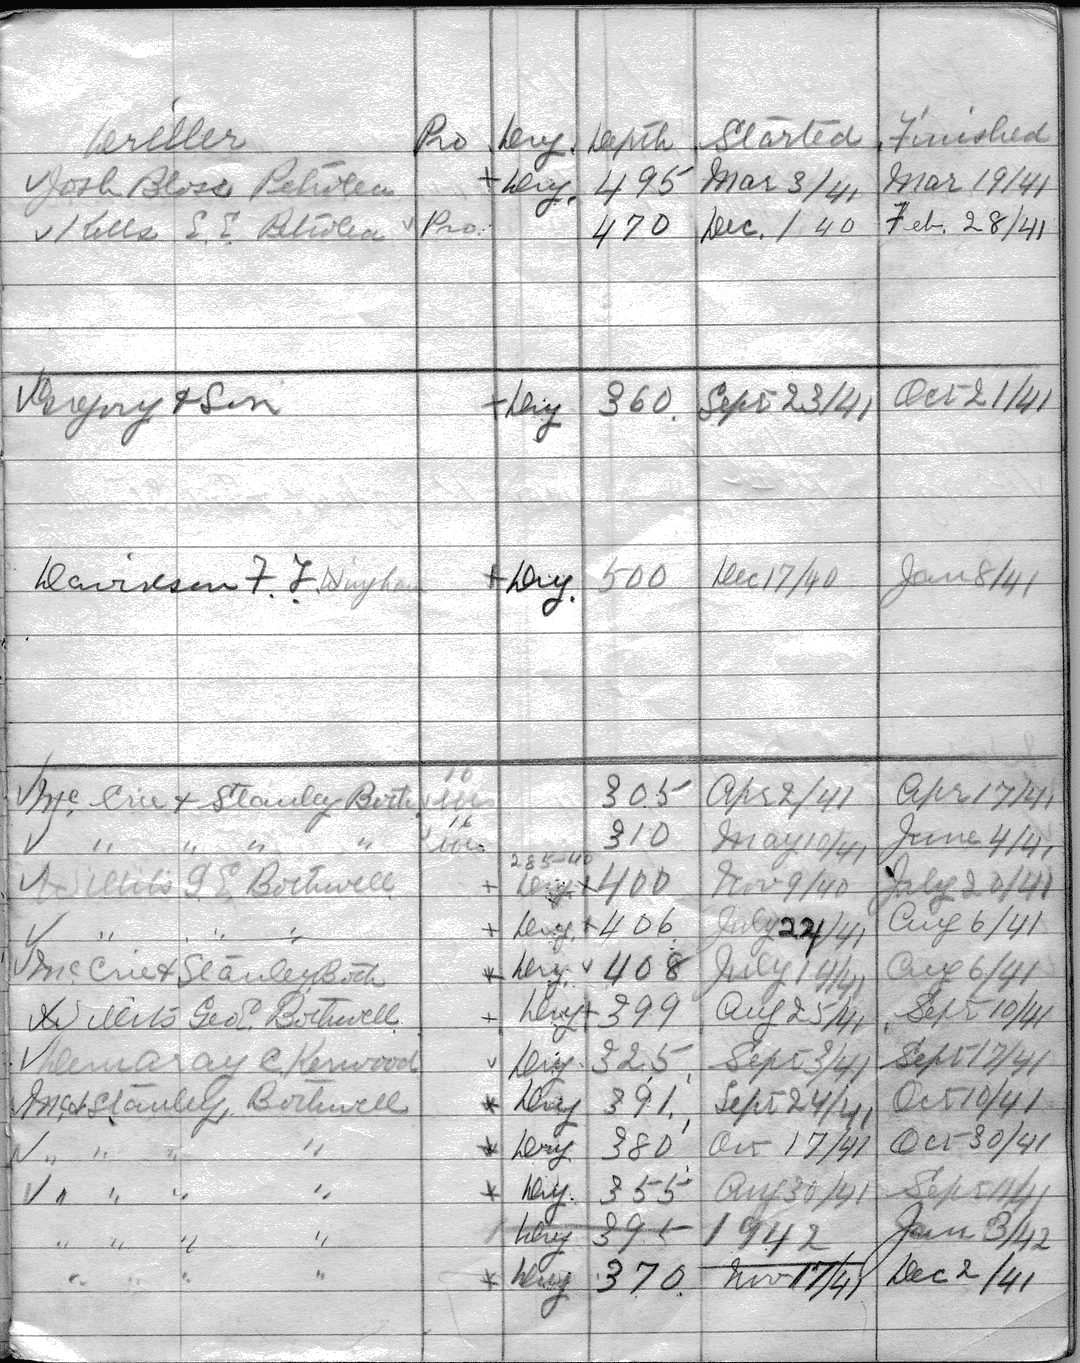 Driller Pro Dry. Depth Started Finished
√ Josh Bloss Petrolea + Dry. 495 Mar 3/41 Mar 19/41
√ Kells E. E. Petrolea √ Pro. 470 Dec. 1 40 Feb. 28/41
√ Gregory & Son + Dry 360. Sept 23/41 Oct 21/41
Davidson F. F. + Dry. 500 Dec 17/40 Jan 8/41
10
√ Mc Crie & Stanley Both √ 305 Apr 2/41 Apr 17/41
16
√ " " " " √ 310 May 10/41 June 4/41
285-40
√ Willits G E Bothwell + Dry + 400 Nov 9/40 July 20/41
√ " " " + Dry. + 406 July 22/41 Aug 6/41
√ Mc Crie & Stanley Both + Dry. √ 408 July 14/41 Aug 6/41
√ Willits Geo E. Bothwell + Dry + 399 Aug 25/41 Sept 10/41
√ Demaray C. Kerwood √ Dry. 325 Sept 3/41 Sept 17/41
Mc & Stanley Bothwell * Dry 391 Sept 24/41 Oct 10/41
√ " " " " * Dry. 380 Oct 17/41 Oct 30/41
√ " " " " * Dry. 355 Aug 30/41 Sept 11/41
" " " " Dry 395 1942 Jan 3/42
" " " " * Dry 370. Nov 17/41 Dec 2/41